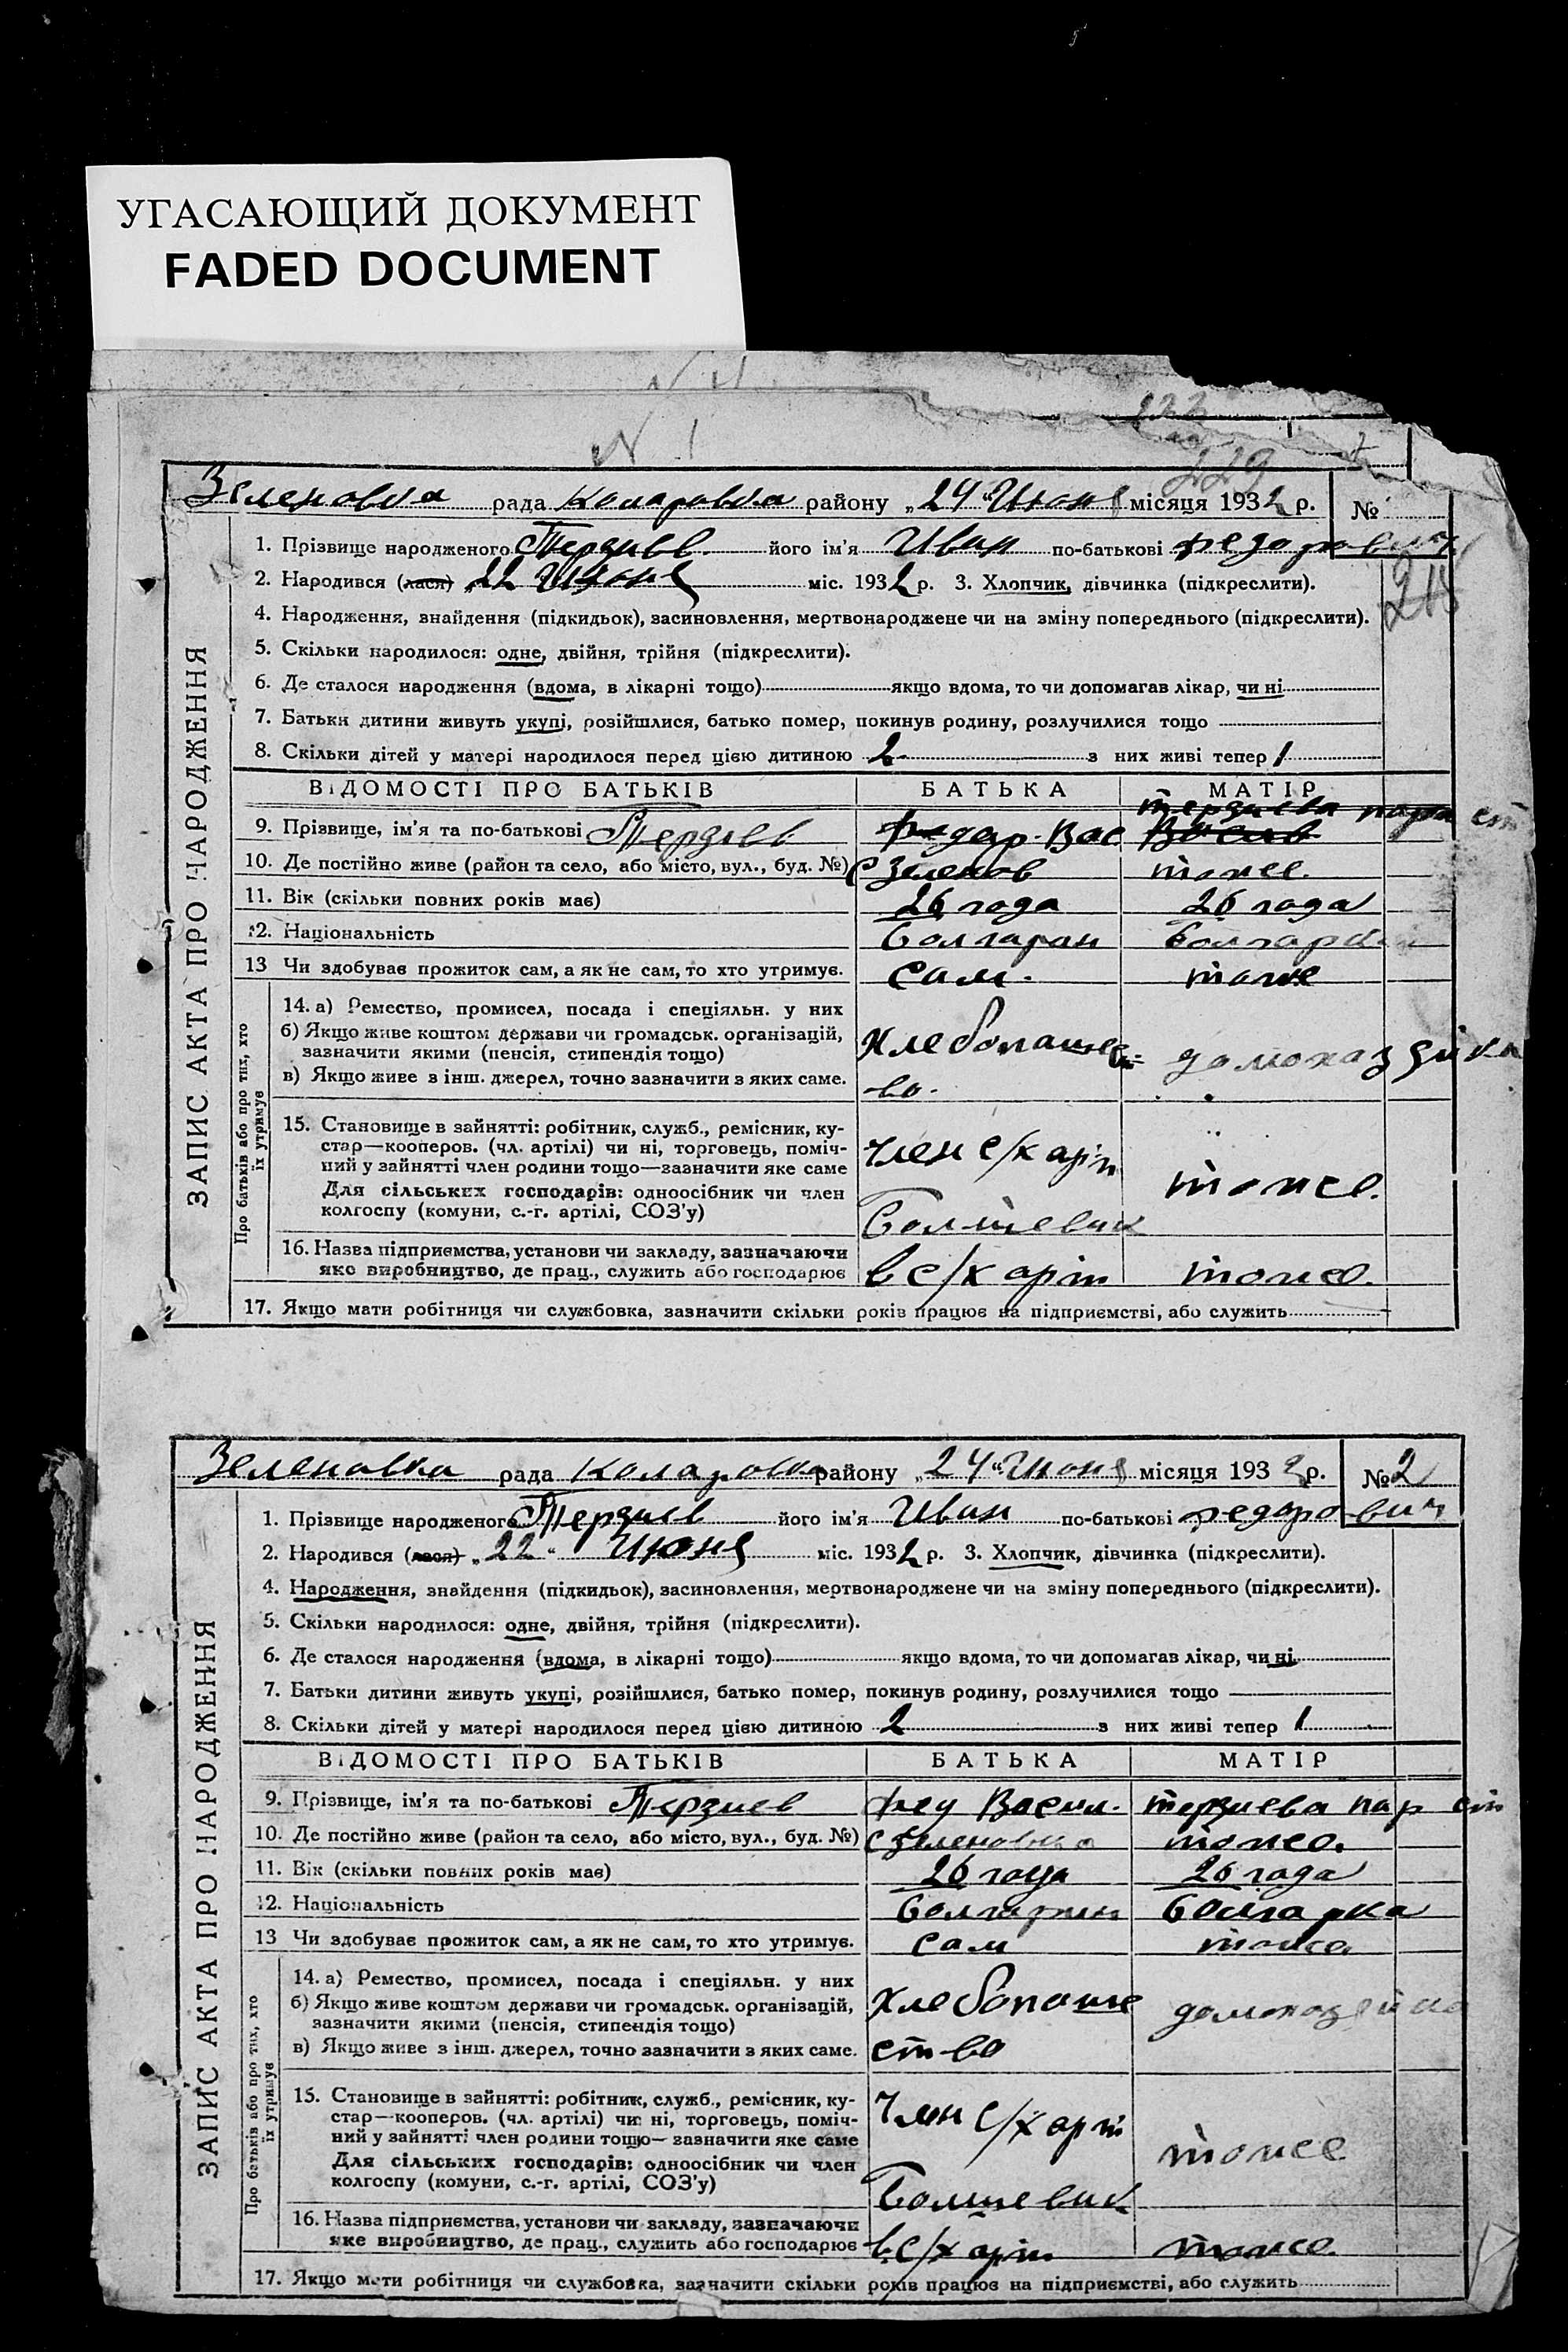 УГАСАЮЩИЙ ДОКУМЕНТ
FADED DOCUMENT
N 1
229
Зеленовка рада Коларовка району „24“ Июня місяця 1932 р. №
1. Прізвище народженого Терзиев його ім'я Иван по-батькові Федорович
2. Народився (лася) „22 Июня міс. 1932 р. 3. Хлопчик, дівчинка (підкреслити).
4. Народження, знайдення (підкидьок), засиновлення, мертвонароджене чи на зміну попереднього (підкреслити).
5. Скільки народилося: одне, двійня, трійня (підкреслити).
6. Де сталося народження (вдома, в лікарні тощо) якщо вдома, то чи допомагав лікар, чи ні
7. Батьки дитини живуть укупі, розійшлися, батько помер, покинув родину, розлучилися тощо
8. Скільки дітей у матері народилося перед цією дитиною 2 з них живі тепер 1
ВІДОМОСТІ ПРО БАТЬКІВ БАТЬКА МАТІР
9. Прізвище, ім'я та по-батькові Терзиев Федор. Вас Терзиева
10. Де постійно живе (район та село, або місто, вул., буд. №) с Зеленов тоже.
11. Вік (скільки повних років має) 26 года 26 года
12. Національність болгарин болгарка
13 Чи здобував прожиток сам, а як не сам, то хто утримує. сам. тоже
14. а) Ремество, промисел, посада і спеціяльн. у них
б) Якщо живе коштом держави чи громадськ. організацій,
зазначити якими (пенсія, стипендія тощо)
в) Якщо живе з інш. джерел, точно зазначити з яких саме.
хлебопашест-
во.
домохазяйка
15. Становище в зайнятті: робітник, служб., ремісник, ку-
стар—кооперов. (чл. артілі) чи ні, торговець, поміч-
ний у зайнятті член родини тощо—зазначити яке саме
Для сільських господарів: одноосібник чи член
колгоспу (комуни, с.-г. артілі, СОЗ'у)
член с/х арт
тоже.
Болшевик
16. Назва підприємства, установи чи закладу, зазначаючи
яке виробництво, де прац., служить або господарює
в с/х арт тоже.
17. Якщо мати робітниця чи службовка, зазначити скільки років працює на підприємстві, або служить
ЗАПИС АКТА ПРО НАРОДЖЕННЯ
Про батьків або про тих, хто
їх утримує
Зеленовка рада Коларовка району „24“ Июня місяця 1932 р. № 2
1. Прізвище народженого Терзиев його ім'я Иван по-батькові Федорович
2. Народився (лася) „22“ Июня міс. 1932 р. 3. Хлопчик, дівчинка (підкреслити).
4. Народження, знайдення (підкидьок), засиновлення, мертвонароджене чи на зміну попереднього (підкреслити).
5. Скільки народилося: одне, двійня, трійня (підкреслити).
6. Де сталося народження (вдома, в лікарні тощо) якщо вдома, то чи допомагав лікар, чи ні
7. Батьки дитини живуть укупі, розійшлися, батько помер, покинув родину, розлучилися тощо
8. Скільки дітей у матері народилося перед цією дитиною 2 з них живі тепер 1
ВІДОМОСТІ ПРО БАТЬКІВ БАТЬКА МАТІР
9. Прізвище, ім'я та по-батькові Терзиев Фед Васил. Терзиева пар ст
10. Де постійно живе (район та село, або місто, вул., буд. №) с Зеленовка тоже.
11. Вік (скільки повних років має) 26 года 26 года
12. Національність болгарин болгарка
13 Чи здобуває прожиток сам, а як не сам, то хто утримує. сам тоже
14. а) Ремество, промисел, посада і спеціяльн. у них
б) Якщо живе коштом держави чи громадськ. організацій,
зазначити якими (пенсія, стипендія тощо)
в) Якщо живе з інш. джерел, точно зазначити з яких саме.
хлебопаше
ство
домохазяйка
15. Становище в зайнятті: робітник, служб., ремісник, ку-
стар—кооперов. (чл. артілі) чи ні, торговець, поміч-
ний у зайнятті член родини тощо—зазначити яке саме
Для сільських господарів: одноосібник чи член
колгоспу (комуни, с.-г. артілі, СОЗ'у)
Член с/х арт
тоже
Болшевик
16. Назва підприємства, установи чи закладу, зазначаючи
яке виробництво, де прац., служить або господарює
в с/х арт тоже.
17. Якщо мати робітниця чи службовка, зазначити скільки років працює на підприємстві, або служить
ЗАПИС АКТА ПРО НАРОДЖЕННЯ
Про батьків або про тих, хто
їх утримує